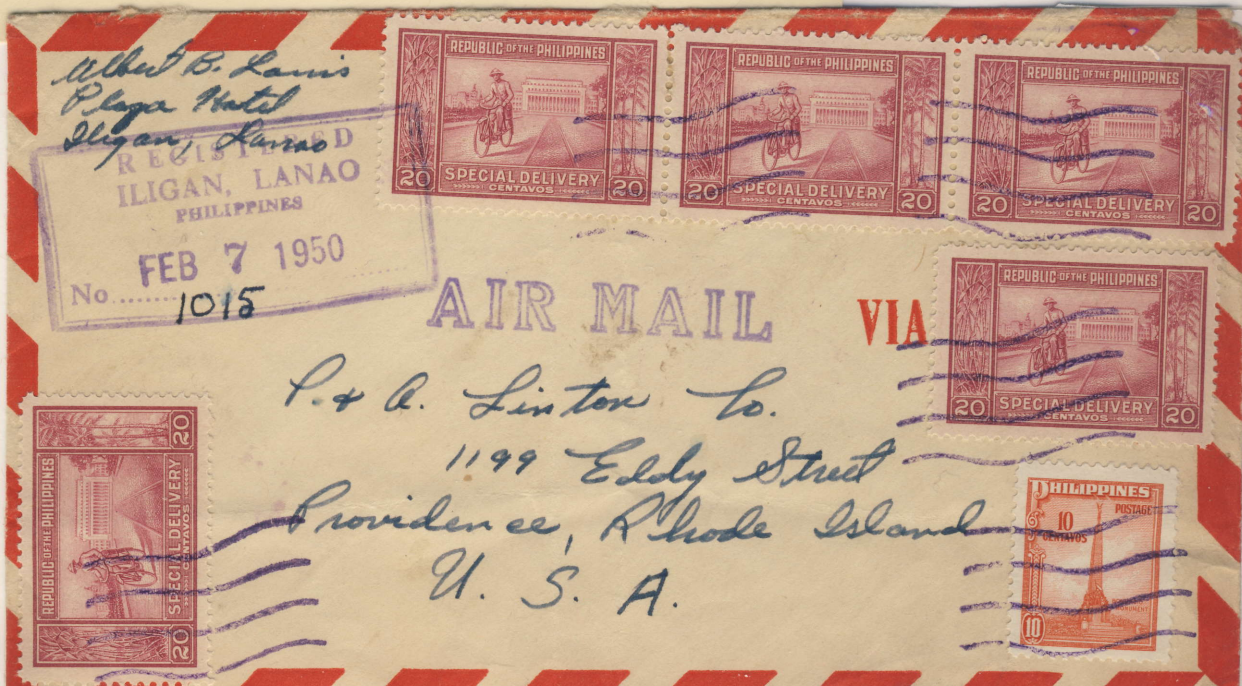 Albert B. Lanis
Plaza Hotel
Iligan, Lanao
REGISTERED
ILIGAN, LANAO
PHILIPPINES
FEB 7 1950
No. 1015
REPUBLIC OF THE PHILIPPINES
20 SPECIAL DELIVERY 20
CENTAVOS
REPUBLIC OF THE PHILIPPINES
20 SPECIAL DELIVERY 20
CENTAVOS
REPUBLIC OF THE PHILIPPINES
20 SPECIAL DELIVERY 20
CENTAVOS
AIR MAIL
VIA
REPUBLIC OF THE PHILIPPINES
20 SPECIAL DELIVERY 20
CENTAVOS
P. & A. Linton Co.
1199 Eddy Street
Providence, Rhode Island
U. S. A.
REPUBLIC OF THE PHILIPPINES
20 SPECIAL DELIVERY 20
CENTAVOS
PHILIPPINES
POSTAGE
10
CENTAVOS
MONUMENT
10